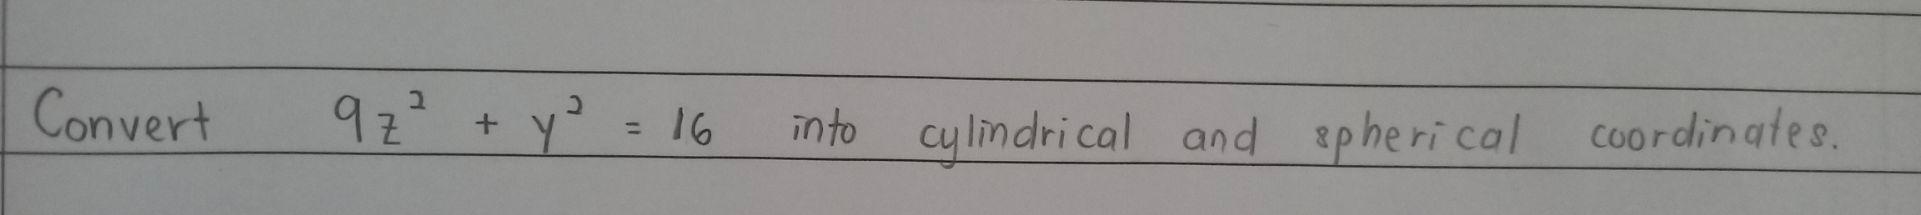 Convert 9z² + y² = 16 into cylindrical and spherical coordinates.